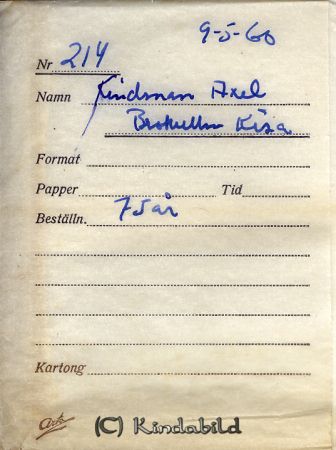 9-5-60
Nr 214
Namn Kindsman Axel
Kisa
Format
Papper Tid
Beställn. 75 år
Kartong
Ark
(C) Kindabild